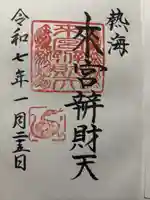 熱海
來宮辨財天
令和七年一月二五日